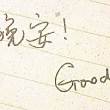 晚安!
Good